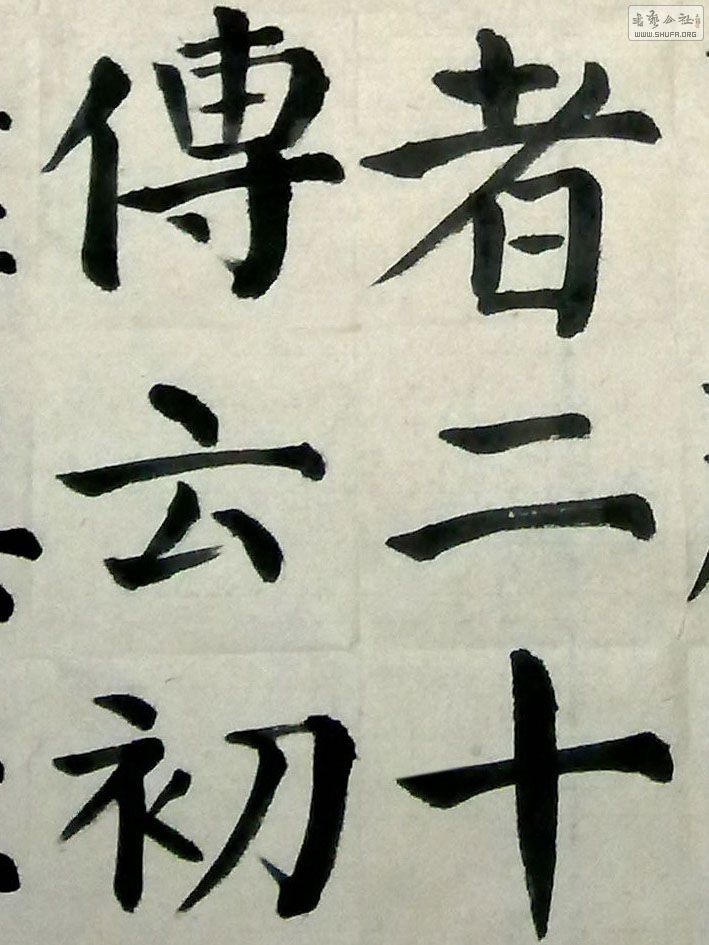 者二十
傳云初
書藝公社
WWW.SHUFA.ORG